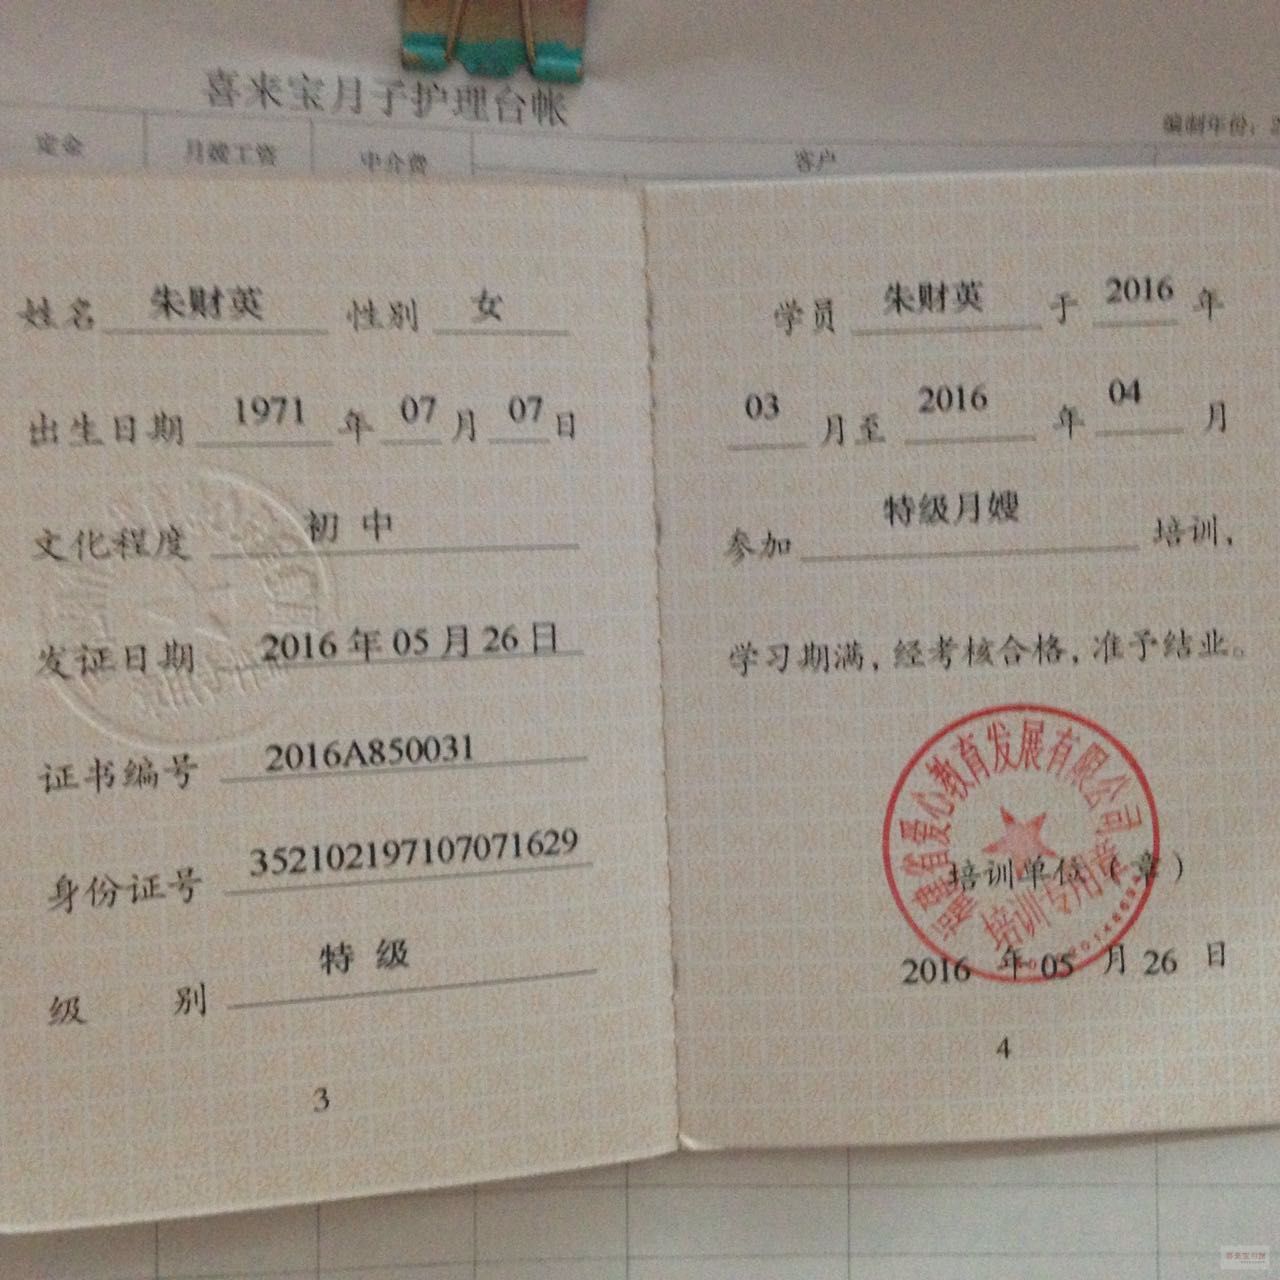 喜来宝月子护理台帐
编制年份：2
定金 月嫂工资 中介费 客户
姓名 朱财英 性别 女
出生日期 1971 年 07 月 07 日
文化程度 初中
发证日期 2016年05月26日
证书编号 2016A850031
身份证号 352102197107071629
级 别 特级
3
学员 朱财英 于 2016 年
03 月至 2016 年 04 月
参加 特级月嫂 培训，
学习期满，经考核合格，准予结业。
福建省爱心教育发展有限公司
培训单位（章）
培训专用章
2016 年 05 月 26 日
4